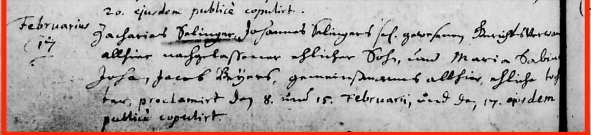 20. ejusdem publicè copulirt.
Februarius Zacharias Salinger, Johannes Salingers sel. gewesenen Gerichts
17 allhier nachgelassener ehlicher Sohn, und Maria Sabina
Jacob Beÿers, gemeinsmanns allhier, ehliche
ter, proclamirt den 8. und 15. Februarii, und den 17. ejusdem
publicè copulirt.